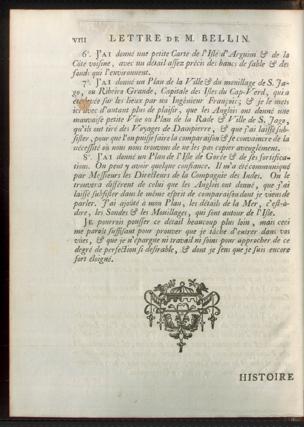 viij LETTRE DE M. BELLIN.
6°. J'AI donné une petite Carte de l'Isle d'Arguim & de la
Côte voisine, avec un détail assez précis des bancs de sable & des
fonds qui l'environnent.
7°. J'AI donné un Plan de la Ville & du mouillage de S. Ja-
go, ou Ribeira Grande, Capitale des Isles du Cap-Verd, qui a
été sur les lieux par un Ingénieur François; & je le mets
ici avec d'autant plus de plaisir, que les Anglois ont donné une
mauvaise petite Vûe ou Plan de la Rade & Ville de S. Jago,
qu'ils ont tiré des Voyages de Dampierre, & que j'ai laissé sub-
sister, pour que l'on puisse faire la comparaison & se convaincre de la
nécessité où nous nous trouvons de ne les pas copier aveuglement.
8°. J'AI donné un Plan de l'Isle de Gorée & de ses fortifica-
tions. On peut y avoir quelque confiance. Il m'a été communiqué
par Messieurs les Directeurs de la Compagnie des Indes. On le
trouvera différent de celui que les Anglois ont donné, que j'ai
laissé subsister dans le même esprit de comparaison dont je viens de
parler. J'ai ajoûté à mon Plan, les détails de la Mer, c'est-à-
dire, les Sondes & les Mouillages, qui sont autour de l'Isle.
JE pourrois pousser ce détail beaucoup plus loin, mais ceci
me paroît suffisant pour prouver que je tâche d'entrer dans vos
vûes, & que je n'épargne ni travail ni soins pour approcher de ce
degré de perfection si desirable, & dont je sens que je suis encore
fort éloigné.
HISTOIRE